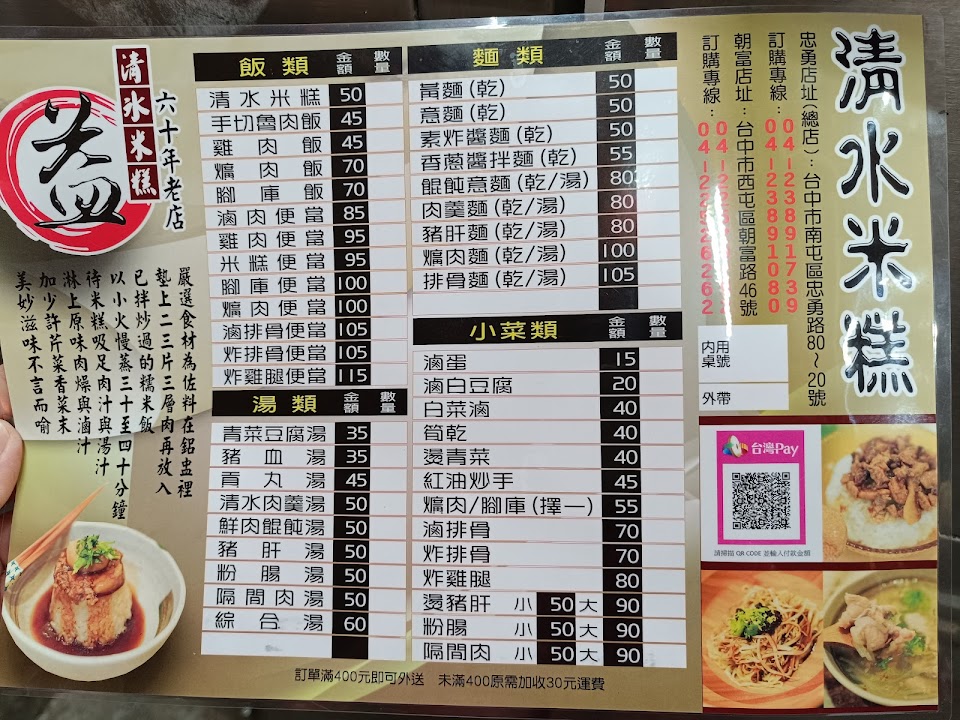 清水米糕
六十年老店
益
嚴選食材為佐料在鋁盅裡
墊上二三片三層肉再放入
已拌炒過的糯米飯
以小火慢蒸三十至四十分鐘
待米糕吸足肉汁與湯汁
淋上原味肉燥與滷汁
加少許芹菜香菜末
美妙滋味不言而喻
飯類 金額 數量
清水米糕 50
手切魯肉飯 45
雞肉飯 45
爌肉飯 70
腳庫飯 70
滷肉便當 85
雞肉便當 95
米糕便當 95
腳庫便當 100
爌肉便當 100
滷排骨便當 105
炸排骨便當 105
炸雞腿便當 115
湯類 金額 數量
青菜豆腐湯 35
豬血湯 35
貢丸湯 45
清水肉羹湯 50
鮮肉餛飩湯 50
豬肝湯 50
粉腸湯 50
隔間肉湯 50
綜合湯 60
麵類 金額 數量
黃麵(乾) 50
意麵(乾) 50
素炸醬麵(乾) 50
香蔥醬拌麵(乾) 55
餛飩意麵(乾/湯) 80
肉羹麵(乾/湯) 80
豬肝麵(乾/湯) 80
爌肉麵(乾/湯) 100
排骨麵(乾/湯) 105
小菜類 金額 數量
滷蛋 15
滷白豆腐 20
白菜滷 40
筍乾 40
燙青菜 40
紅油炒手 45
爌肉/腳庫(擇一) 55
滷排骨 70
炸排骨 70
炸雞腿 80
燙豬肝 小 50 大 90
粉腸 小 50 大 90
隔間肉 小 50 大 90
訂單滿400元即可外送 未滿400原需加收30元運費
清水米糕
忠勇店址(總店):台中市南屯區忠勇路80~20號
訂購專線:04-23891739
04-23891080
朝富店址:台中市西屯區朝富路46號
訂購專線:
內用桌號
外帶
台灣Pay
請掃描 QR CODE 並輸入付款金額